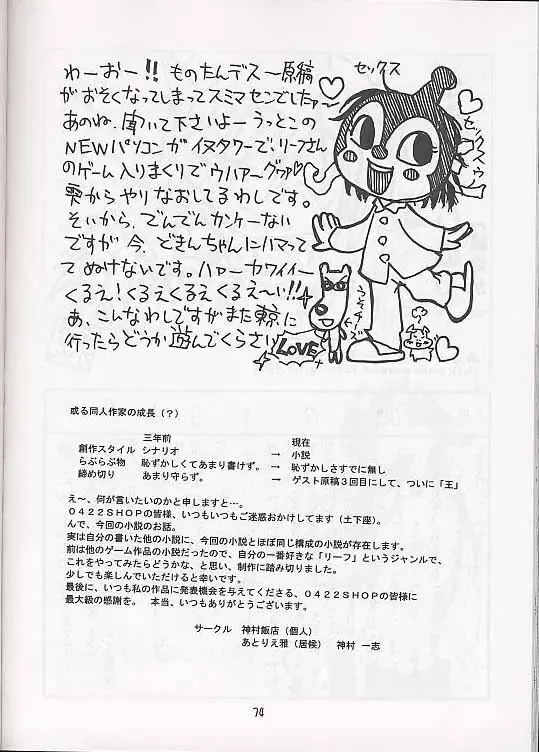 わーおー!! ものたんデス〜原稿
がおそくなってしまってスミマセンでしたァ〜
あのね、聞いて下さいよーうっとこの
NEWパソコンがイヌタワーで、リーフさん
のゲーム入りまくりでウハァ〜グゥァ♡
雫からやりなおしてるわしです。
そいから、でんでんカンケーない
ですが今、どきんちゃんにハマって
てぬけないです。ハァーカワイイー
くるえ!くるえくるえくるえ〜い!!
あ、こんなわしですがまた東京に
行ったらどうか遊んでくらさい
セックス
セックスゥ
LOVE
或る同人作家の成長(?)
三年前 現在
創作スタイル シナリオ → 小説
らぶらぶ物 恥ずかしくてあまり書けず。 → 恥ずかしさすでに無し
締め切り あまり守らず。 → ゲスト原稿3回目にして、ついに「王」
え〜、何が言いたいのかと申しますと…。
0422SHOPの皆様、いつもいつもご迷惑おかけしてます(土下座)。
んで、今回の小説のお話。
実は自分の書いた他の小説に、今回の小説とほぼ同じ構成の小説が存在します。
前は他のゲーム作品の小説だったので、自分の一番好きな「リーフ」というジャンルで、
これをやってみたらどうかな、と思い、制作に踏み切りました。
少しでも楽しんでいただけると幸いです。
最後に、いつも私の作品に発表機会を与えてくださる、0422SHOPの皆様に
最大級の感謝を。 本当、いつもありがとうございます。
サークル 神村飯店(個人)
あとりえ雅(居候) 神村 一志
74